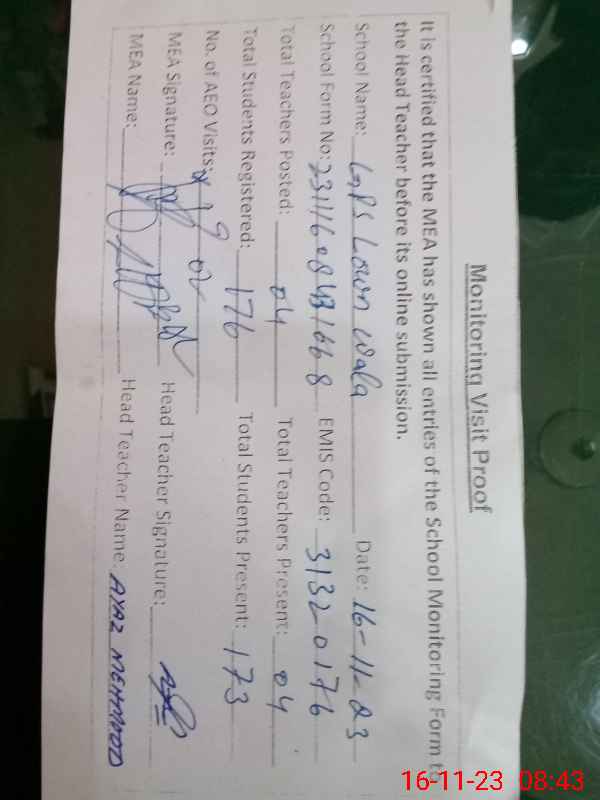 Monitoring Visit Proof
It is certified that the MEA has shown all entries of the School Monitoring Form to
the Head Teacher before its online submission.
School Name: GPS Lawn Wala Date: 16-11-23
School Form No: EMIS Code: 31320176
Total Teachers Posted: 04 Total Teachers Present: 04
Total Students Registered: 176 Total Students Present: 173
No. of AEO Visits: 02
MEA Signature: Head Teacher Signature:
MEA Name: Head Teacher Name: AYAZ MEHMOOD
16-11-23 08:43